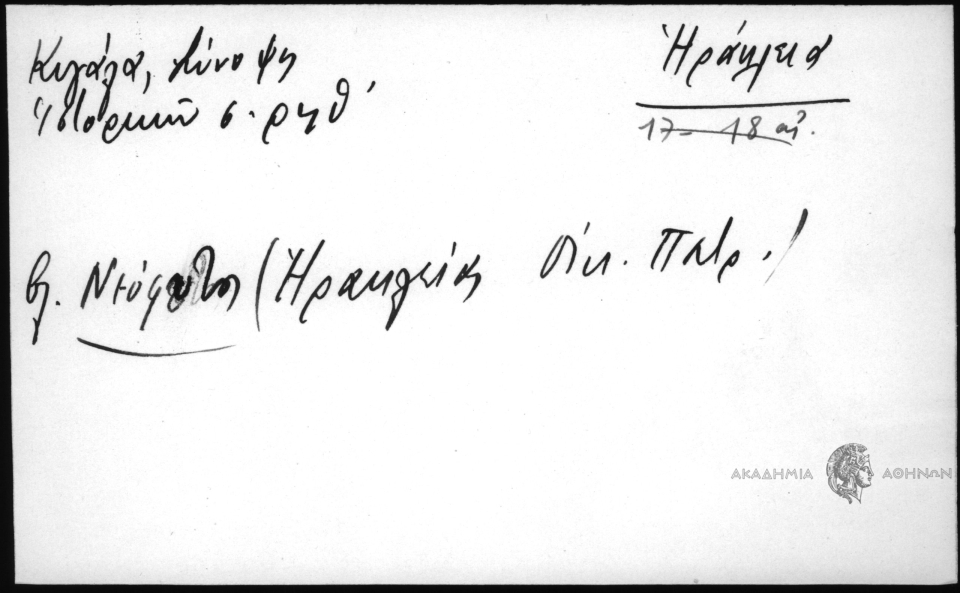 Κιγάλα, Σύνοψη
Ἱστορικὴ σ. ρηθ'
Ἡράκλεια
17- 18 αἰ.
βλ. Νεόφυτος (Ἡρακλείας Οἰκ. Πατρ.)
ΑΚΑΔΗΜΙΑ ΑΘΗΝΩΝ